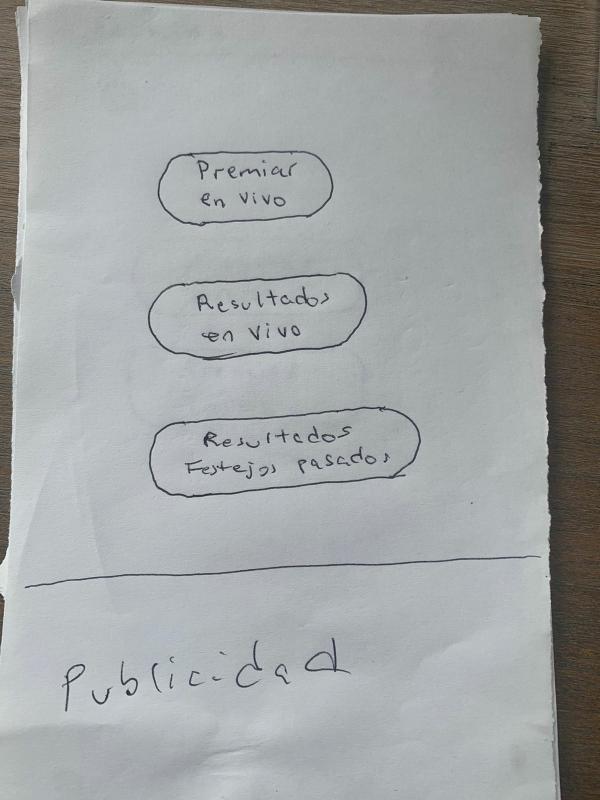 Premiar
en vivo
Resultados
en vivo
Resultados
Festejos pasados
Publicidad